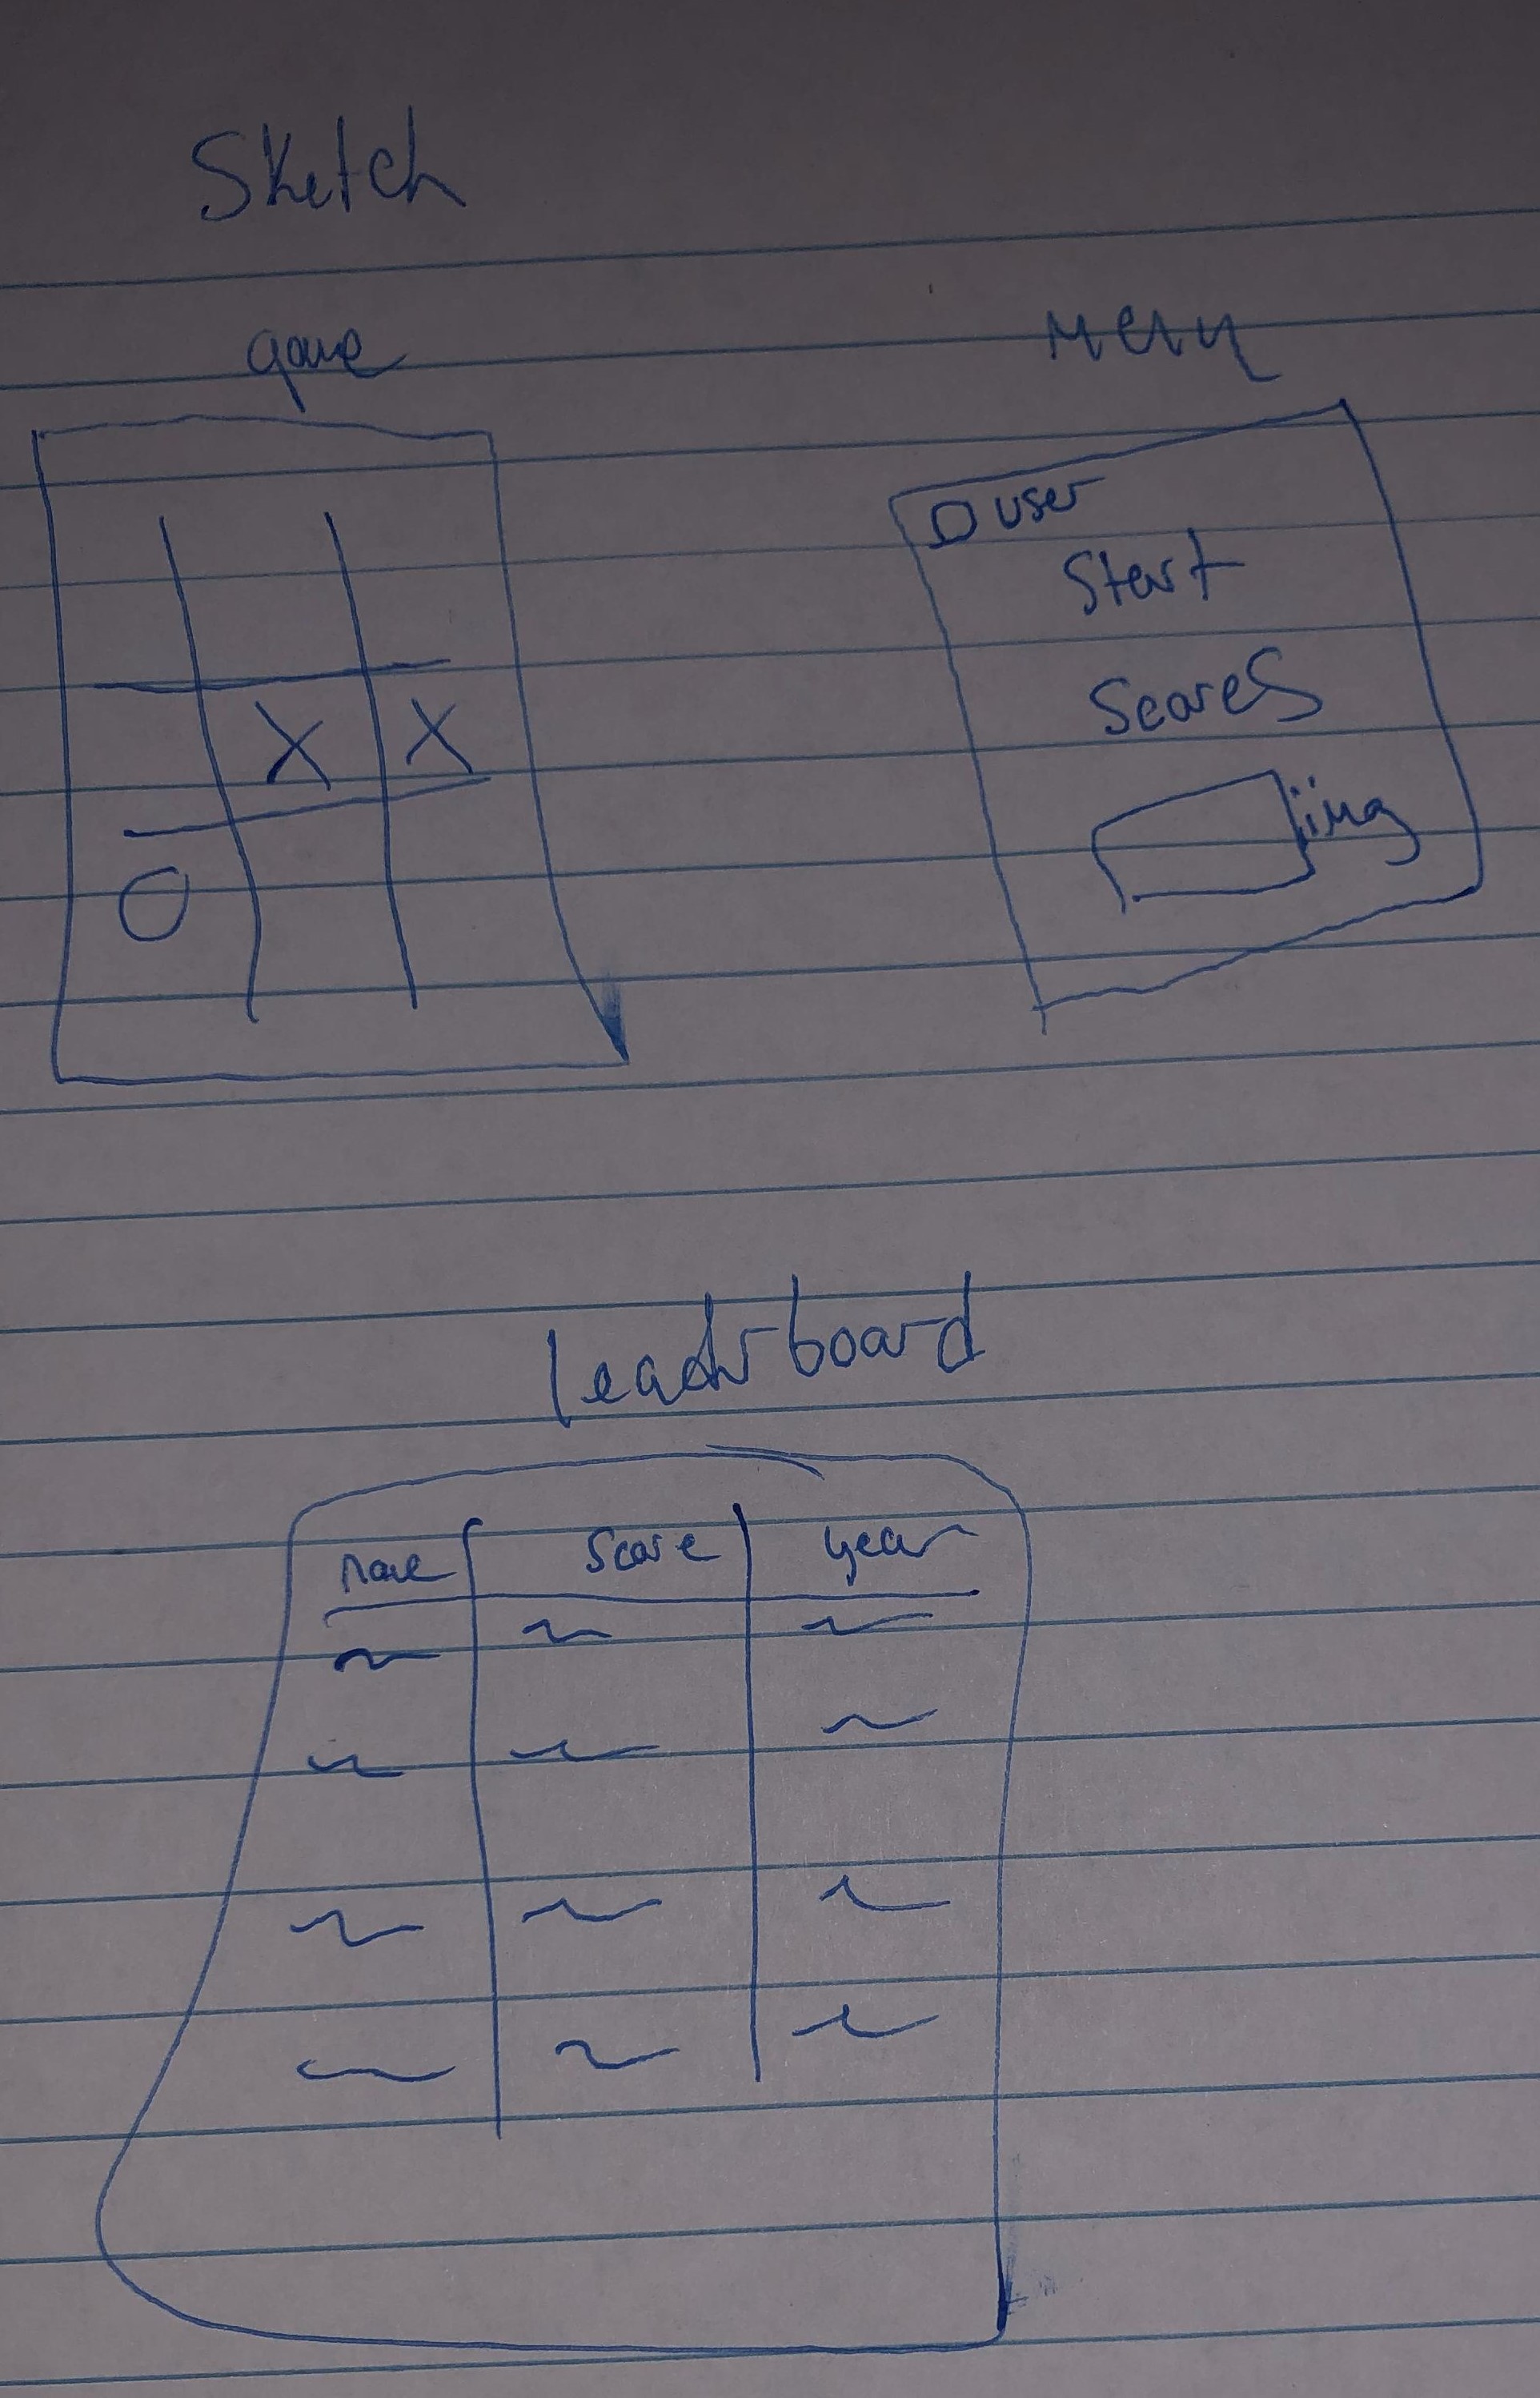 Sketch
game
Menu
user
Start
X X
Scores
img
O
leaderboard
name score year